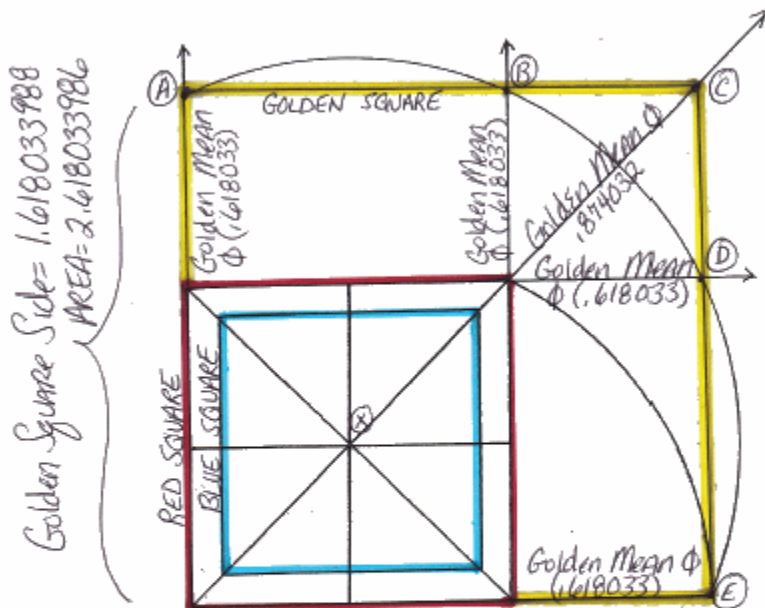 Golden Square Side= 1.618033988
AREA= 2.618033986
A
B
C
GOLDEN SQUARE
Golden Mean
Φ (.618033)
Golden Mean
Φ (.618033)
Golden Mean Φ
.874032
D
Golden Mean
Φ (.618033)
RED SQUARE
BLUE SQUARE
X
Golden Mean Φ
(.618033)
E